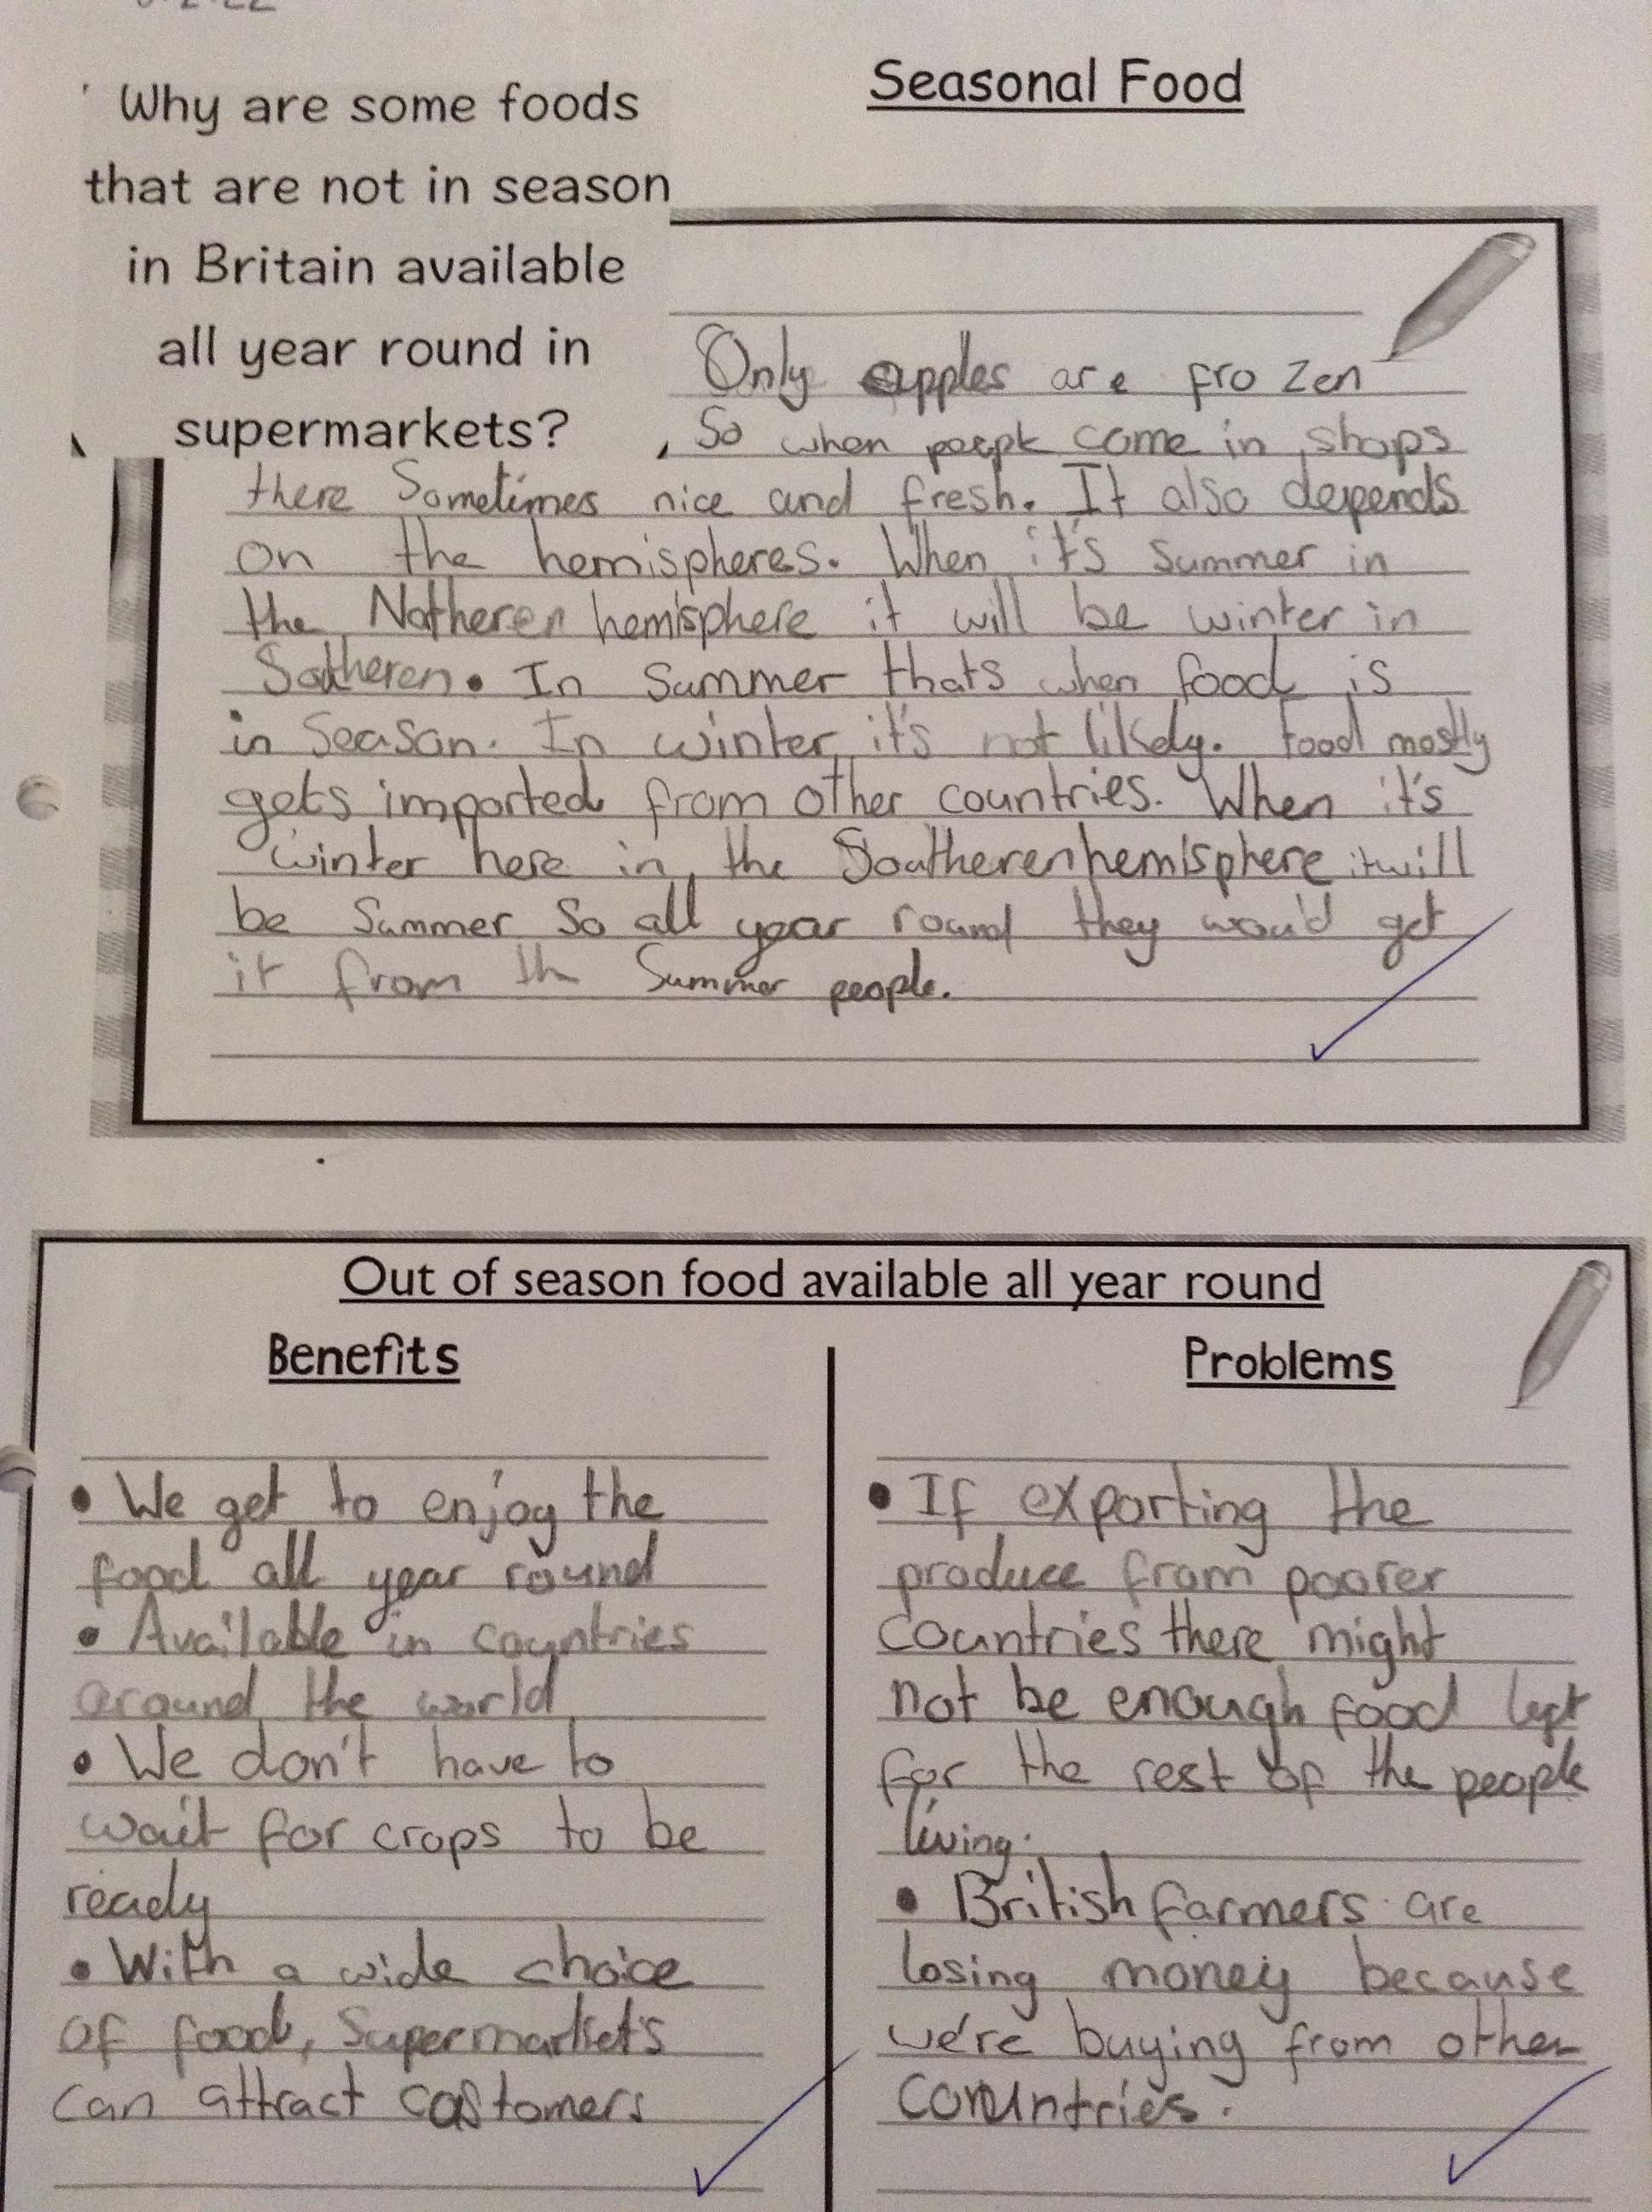 Seasonal Food
Why are some foods
that are not in season
in Britain available
all year round in
supermarkets?
Only apples are fro zen
So when people come in shops
there Sometimes nice and fresh. It also depends
on the hemispheres. When it's summer in
the Notheren hemisphere it will be winter in
Sotheren. In Summer thats when food is
in Season. In winter it's not likely. Food mostly
gets imported from other countries. When it's
winter here in the Southeren hemisphere it will
be Summer So all year round they would get
it from th Summer people.
Out of season food available all year round
Benefits
• We get to enjoy the
food all year round
• Available in countries
around the world
• We don't have to
wait for crops to be
ready
• With a wide choice
of food, Supermarkets
can attract customers
Problems
• If exporting the
produce from poorer
countries there might
not be enough food left
for the rest of the people
living.
• British farmers are
losing money because
we're buying from other
countries.